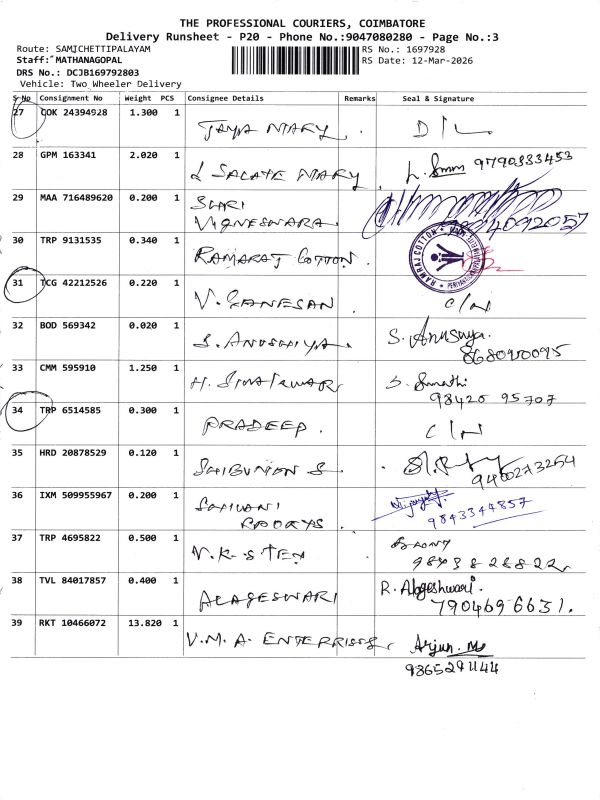 THE PROFESSIONAL COURIERS, COIMBATORE
Delivery Runsheet - P20 - Phone No.:9047080280 - Page No.:3
Route: SAMICHETTIPALAYAM RS No.: 1697928
Staff: MATHANAGOPAL RS Date: 12-Mar-2026
DRS No.: DCJB169792803
Vehicle: Two Wheeler Delivery
S No Consignment No Weight PCS Consignee Details Remarks Seal & Signature
27 COK 24394928 1.300 1
JAYA MARY. D/L
28 GPM 163341 2.020 1
L SAGAYE MARY 9790333453
29 MAA 716489620 0.200 1 SHRI
VIGNESWARA 4092057
30 TRP 9131535 0.340 1
RAMARAJ COTTON. RAMRAJ COTTON
31 TCG 42212526 0.220 1
V. GANESAN C/N
32 BOD 569342 0.020 1 S. Anusuya.
S. ANUSHIYA. 8680900095
33 CMM 595910 1.250 1
H. S. Sumathi
98420 95707
34 TRP 6514585 0.300 1
PRADEEP. C/N
35 HRD 20878529 0.120 1
S. 9400273264
36 IXM 509955967 0.200 1
9843344857
37 TRP 4695822 0.500 1
98438 28822.
38 TVL 84017857 0.400 1 R. Alageshwari
ALAGESWARI 7904696631.
39 RKT 10466072 13.820 1
V.M.A. ENTERPRISES, Arjun. M
9865291144